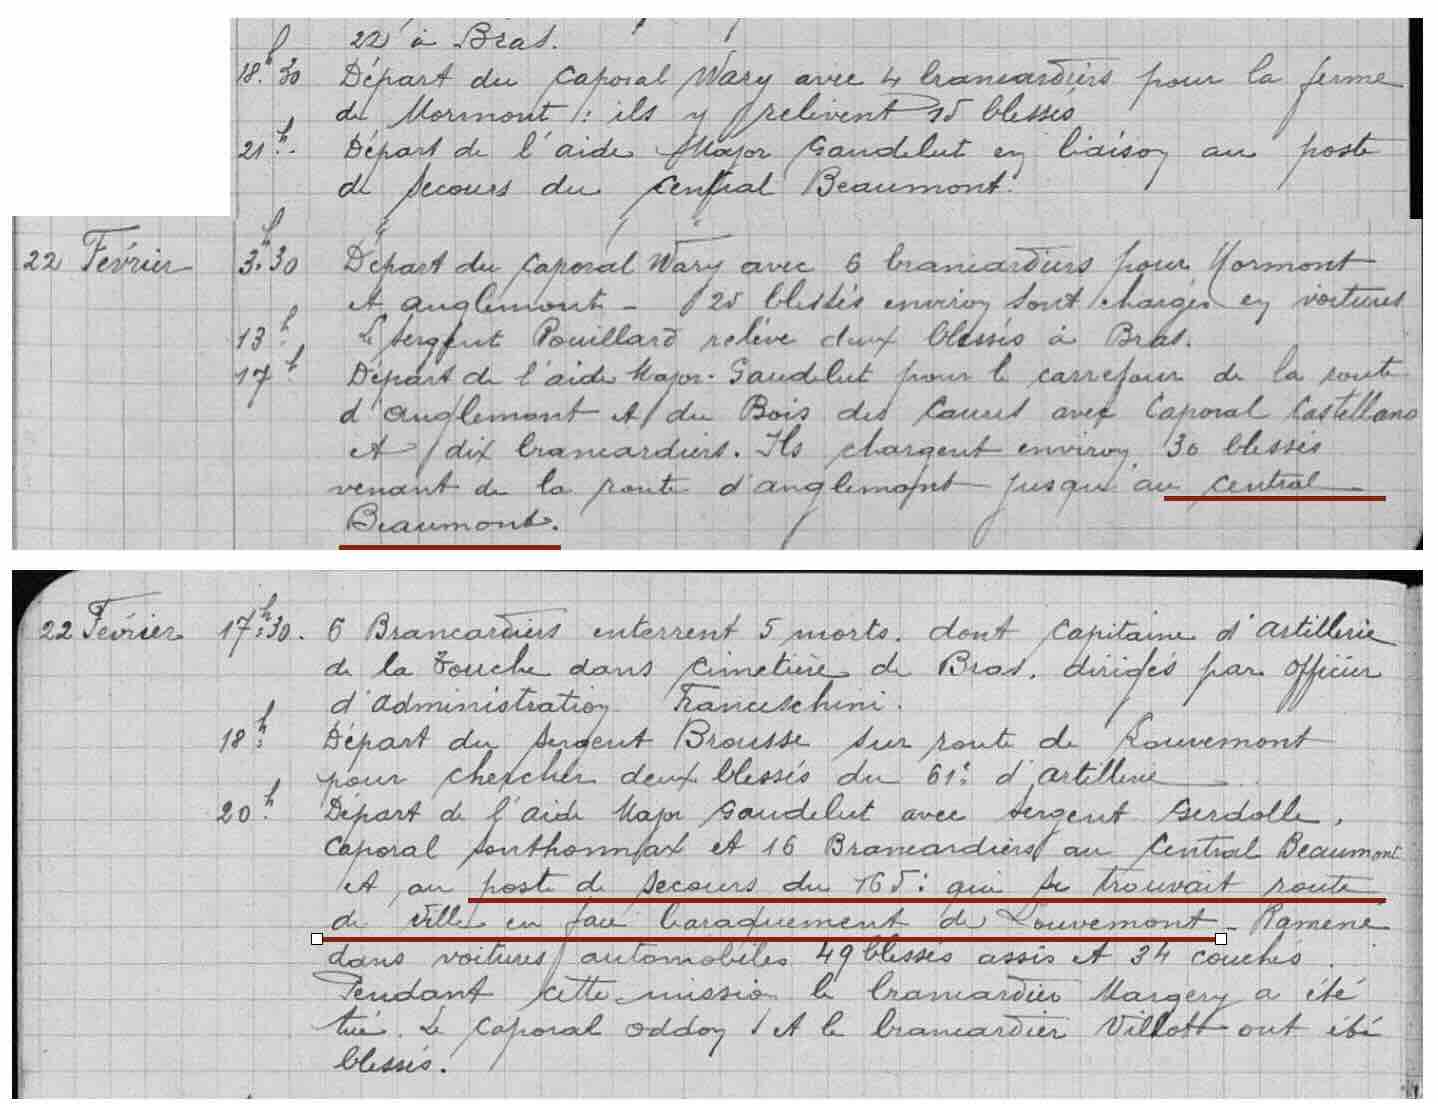 22 à Bras.
18.h30 Départ du Caporal Wary avec 4 brancardiers pour la ferme
de Mormont : ils y relèvent 15 blessés
21h. Départ de l'aide Major Gaudelut en liaison au poste
de secours du Central Beaumont.
22 Février 3.h30 Départ du Caporal Wary avec 6 brancardiers pour Mormont
et anglemont - 25 blessés environ sont chargés en voitures
13h Le Sergent Pouillard relève deux blessés à Bras.
17h Départ de l'aide Major Gaudelut pour le carrefour de la route
d'anglemont et du Bois des Caures avec Caporal Castellano
et dix brancardiers. Ils chargent environ 30 blessés
venant de la route d'anglemont jusqu'au Central
Beaumont.
22 Février 17h:30. 6 Brancardiers enterrent 5 morts. dont Capitaine d'Artillerie
de la Touche dans Cimetière de Bras. dirigés par Officier
d'administration Franceschini.
18h: Départ du Sergent Brousse sur route de Louvemont
pour chercher deux blessés du 61e d'artillerie
20h: Départ de l'aide Major Gaudelut avec Sergent Gerdolle,
Caporal Southonnax et 16 Brancardiers au Central Beaumont
et au poste de secours du 165e qui se trouvait route
de ville en face baraquement de Louvemont - Ramené
dans voitures automobiles 49 blessés assis et 34 couchés.
Pendant cette mission le brancardier Margery a été
tué. Le Caporal Oddoy et le brancardier Villott ont été
blessés.